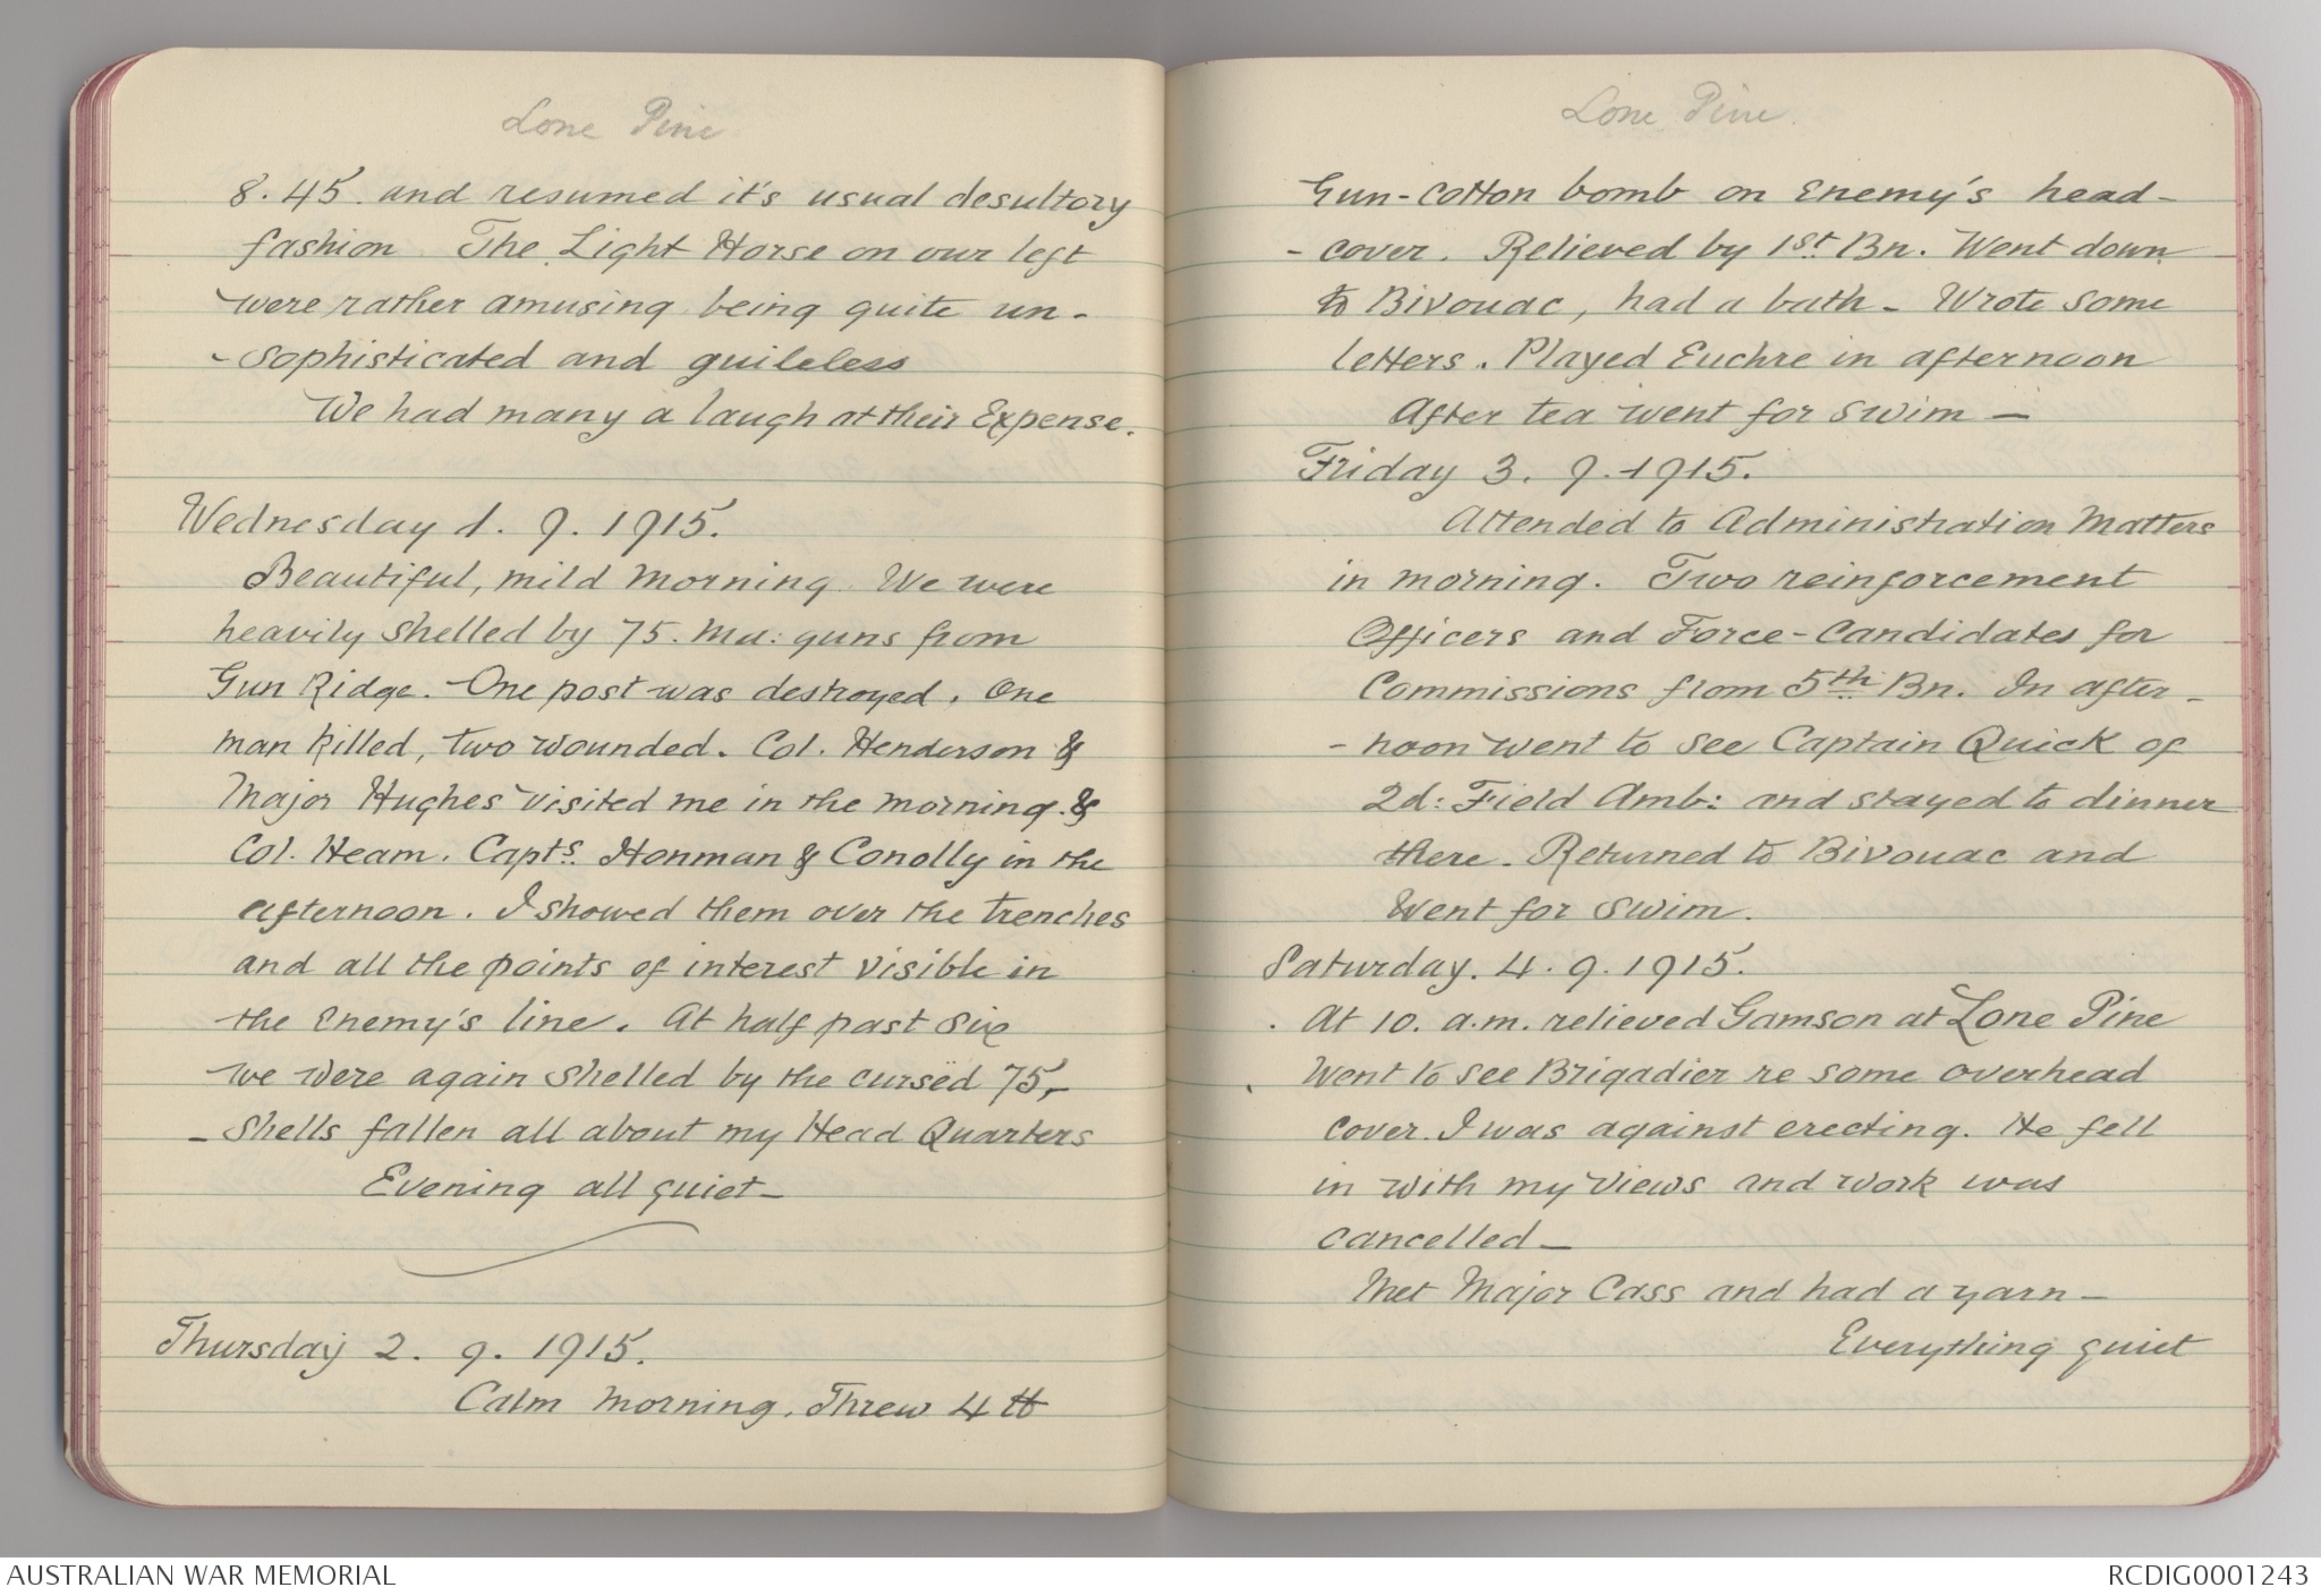 Lone Pine
8.45 and resumed it's usual desultory
fashion The Light Horse on our left
were rather amusing being quite un-
-sophisticated and guileless
We had many a laugh at their Expense.
Wednesday 1. 9. 1915.
Beautiful, mild morning. We were
heavily shelled by 75. Mu: guns from
Gun Ridge. One post was destroyed. One
man killed, two wounded. Col. Henderson &
Major Hughes visited me in the morning. &
Col. Heam. Capts. Honman & Conolly in the
afternoon. I showed them over the trenches
and all the points of interest visible in
the Enemy's line. At half past six
we were again shelled by the cursed 75,-
- Shells fallen all about my Head Quarters
Evening all quiet -
Thursday 2. 9. 1915.
Calm morning. Threw 4 lb
Lone Pine.
Gun-Cotton bomb on Enemy's head-
- cover. Relieved by 1st Bn. Went down
to Bivouac, had a bath - Wrote some
letters. Played Euchre in afternoon
After tea went for swim -
Friday 3. 9. 1915.
Attended to Administration Matters
in morning. Two reinforcement
Officers and Force-Candidates for
Commissions from 5th Bn. In after-
- noon went to see Captain Quick of
2d: Field Amb: and stayed to dinner
there. Returned to Bivouac and
Went for swim.
Saturday. 4. 9. 1915.
At 10. a.m. relieved Gamson at Lone Pine
Went to see Brigadier re some overhead
cover. I was against erecting. He fell
in with my views and work was
cancelled -
Met Major Cass and had a yarn -
Everything quiet
AUSTRALIAN WAR MEMORIAL
RCDIG0001243